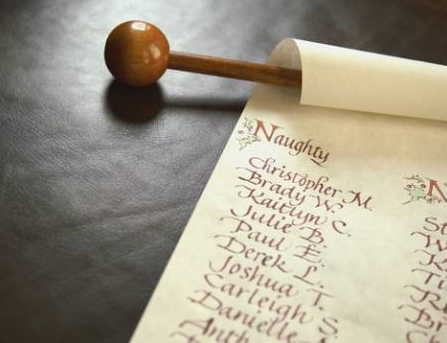 Naughty
Christopher M.
Brady W.
Kaitlyn C.
Julie B.
Paul E.
Derek L.
Joshua T.
Carleigh S.
Danielle
Anth
N